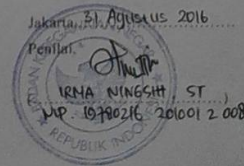 Jakarta, 31 Agustus 2016
Penilai,
IRMA NINGSIH ST
NIP. 19780216 201001 2 008
REPUBLIK INDONESIA